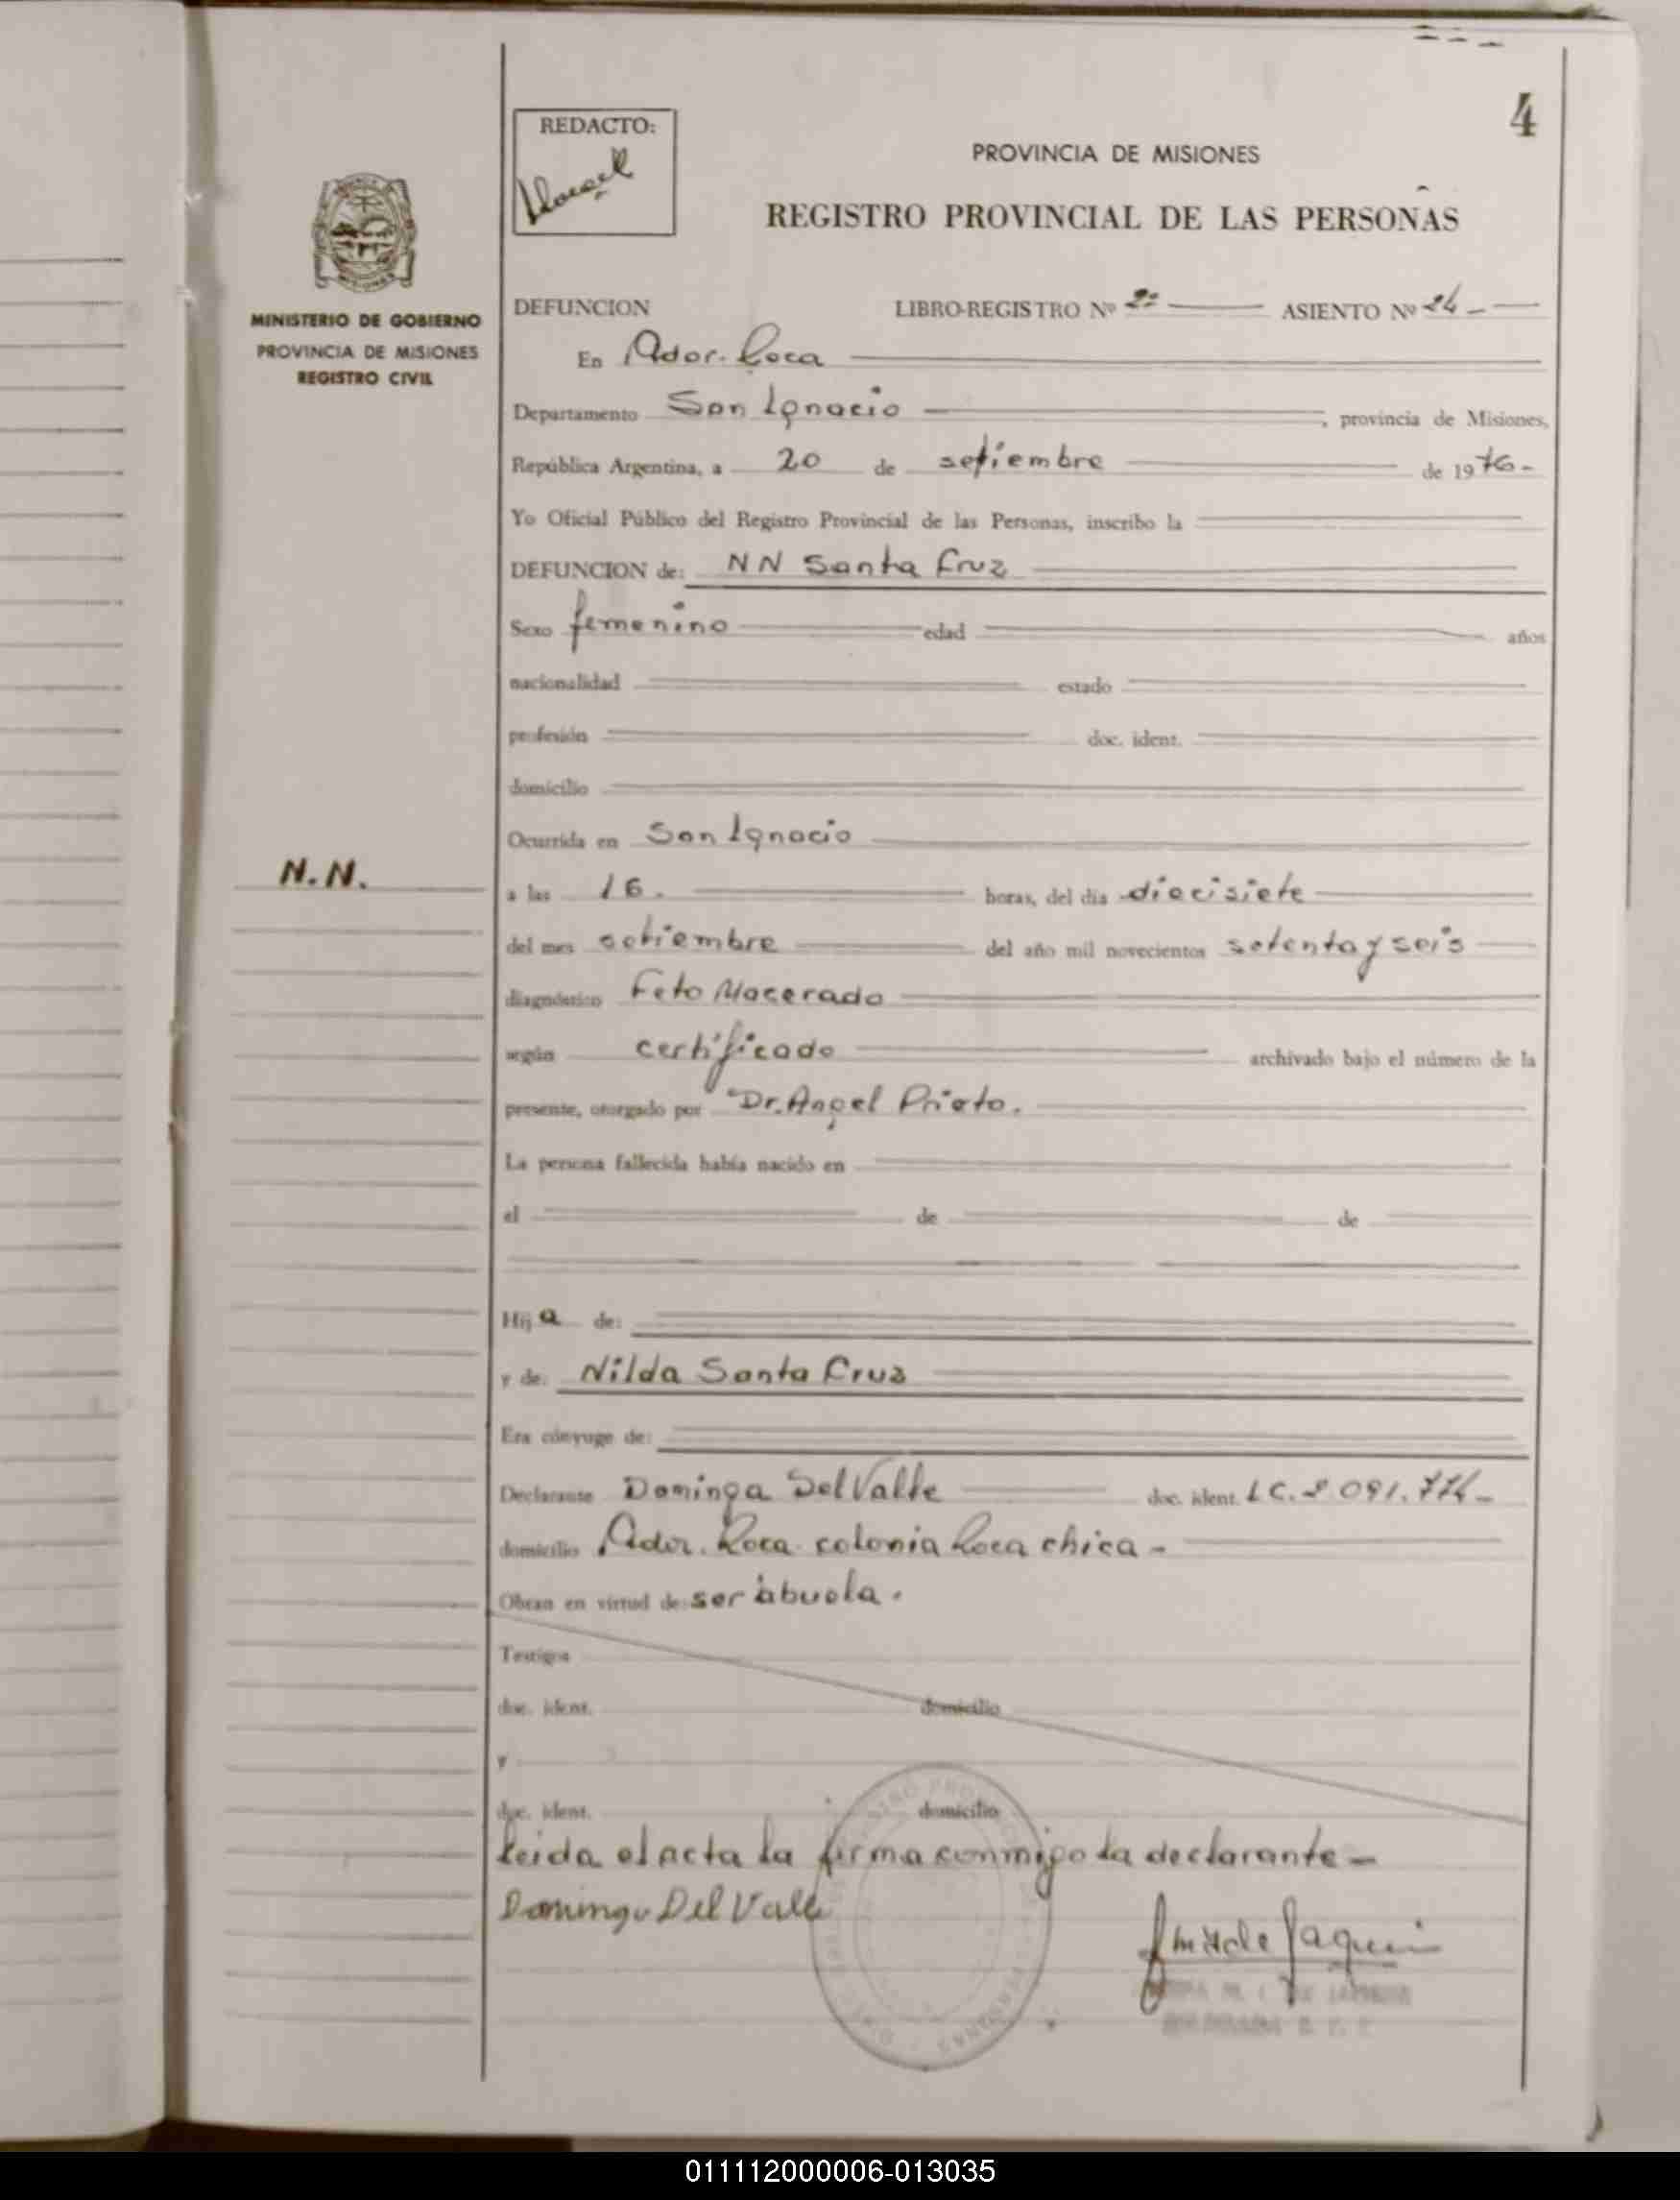 4
REDACTO:
PROVINCIA DE MISIONES
REGISTRO PROVINCIAL DE LAS PERSONAS
MINISTERIO DE GOBIERNO
PROVINCIA DE MISIONES
REGISTRO CIVIL
DEFUNCION LIBRO-REGISTRO Nº 2º ASIENTO Nº 24 -
En Gdor. Roca
Departamento San Ignacio, provincia de Misiones,
República Argentina, a 20 de setiembre de 1976-
Yo Oficial Público del Registro Provincial de las Personas, inscribo la
DEFUNCION de: NN Santa Cruz
Sexo femenino edad años
nacionalidad estado
profesión doc. ident.
domicilio
Ocurrida en San Ignacio
N.N.
a las 16. horas, del día diecisiete
del mes setiembre del año mil novecientos setenta y seis
diagnóstico Feto Macerado
según certificado archivado bajo el número de la
presente, otorgado por Dr. Angel Prieto.
La persona fallecida había nacido en
el de de
Hij a de:
y de: Nilda Santa Cruz
Era cónyuge de:
Declarante Dominga Del Valle doc. ident. LC. 2.091.774-
domicilio Gdor. Roca colonia Roca chica -
Obran en virtud de: ser abuela.
Testigos
doc. ident. domicilio
y
doc. ident. domicilio
Leida el acta la firma conmigo la declarante -
Dominga Del Valle
011112000006-013035